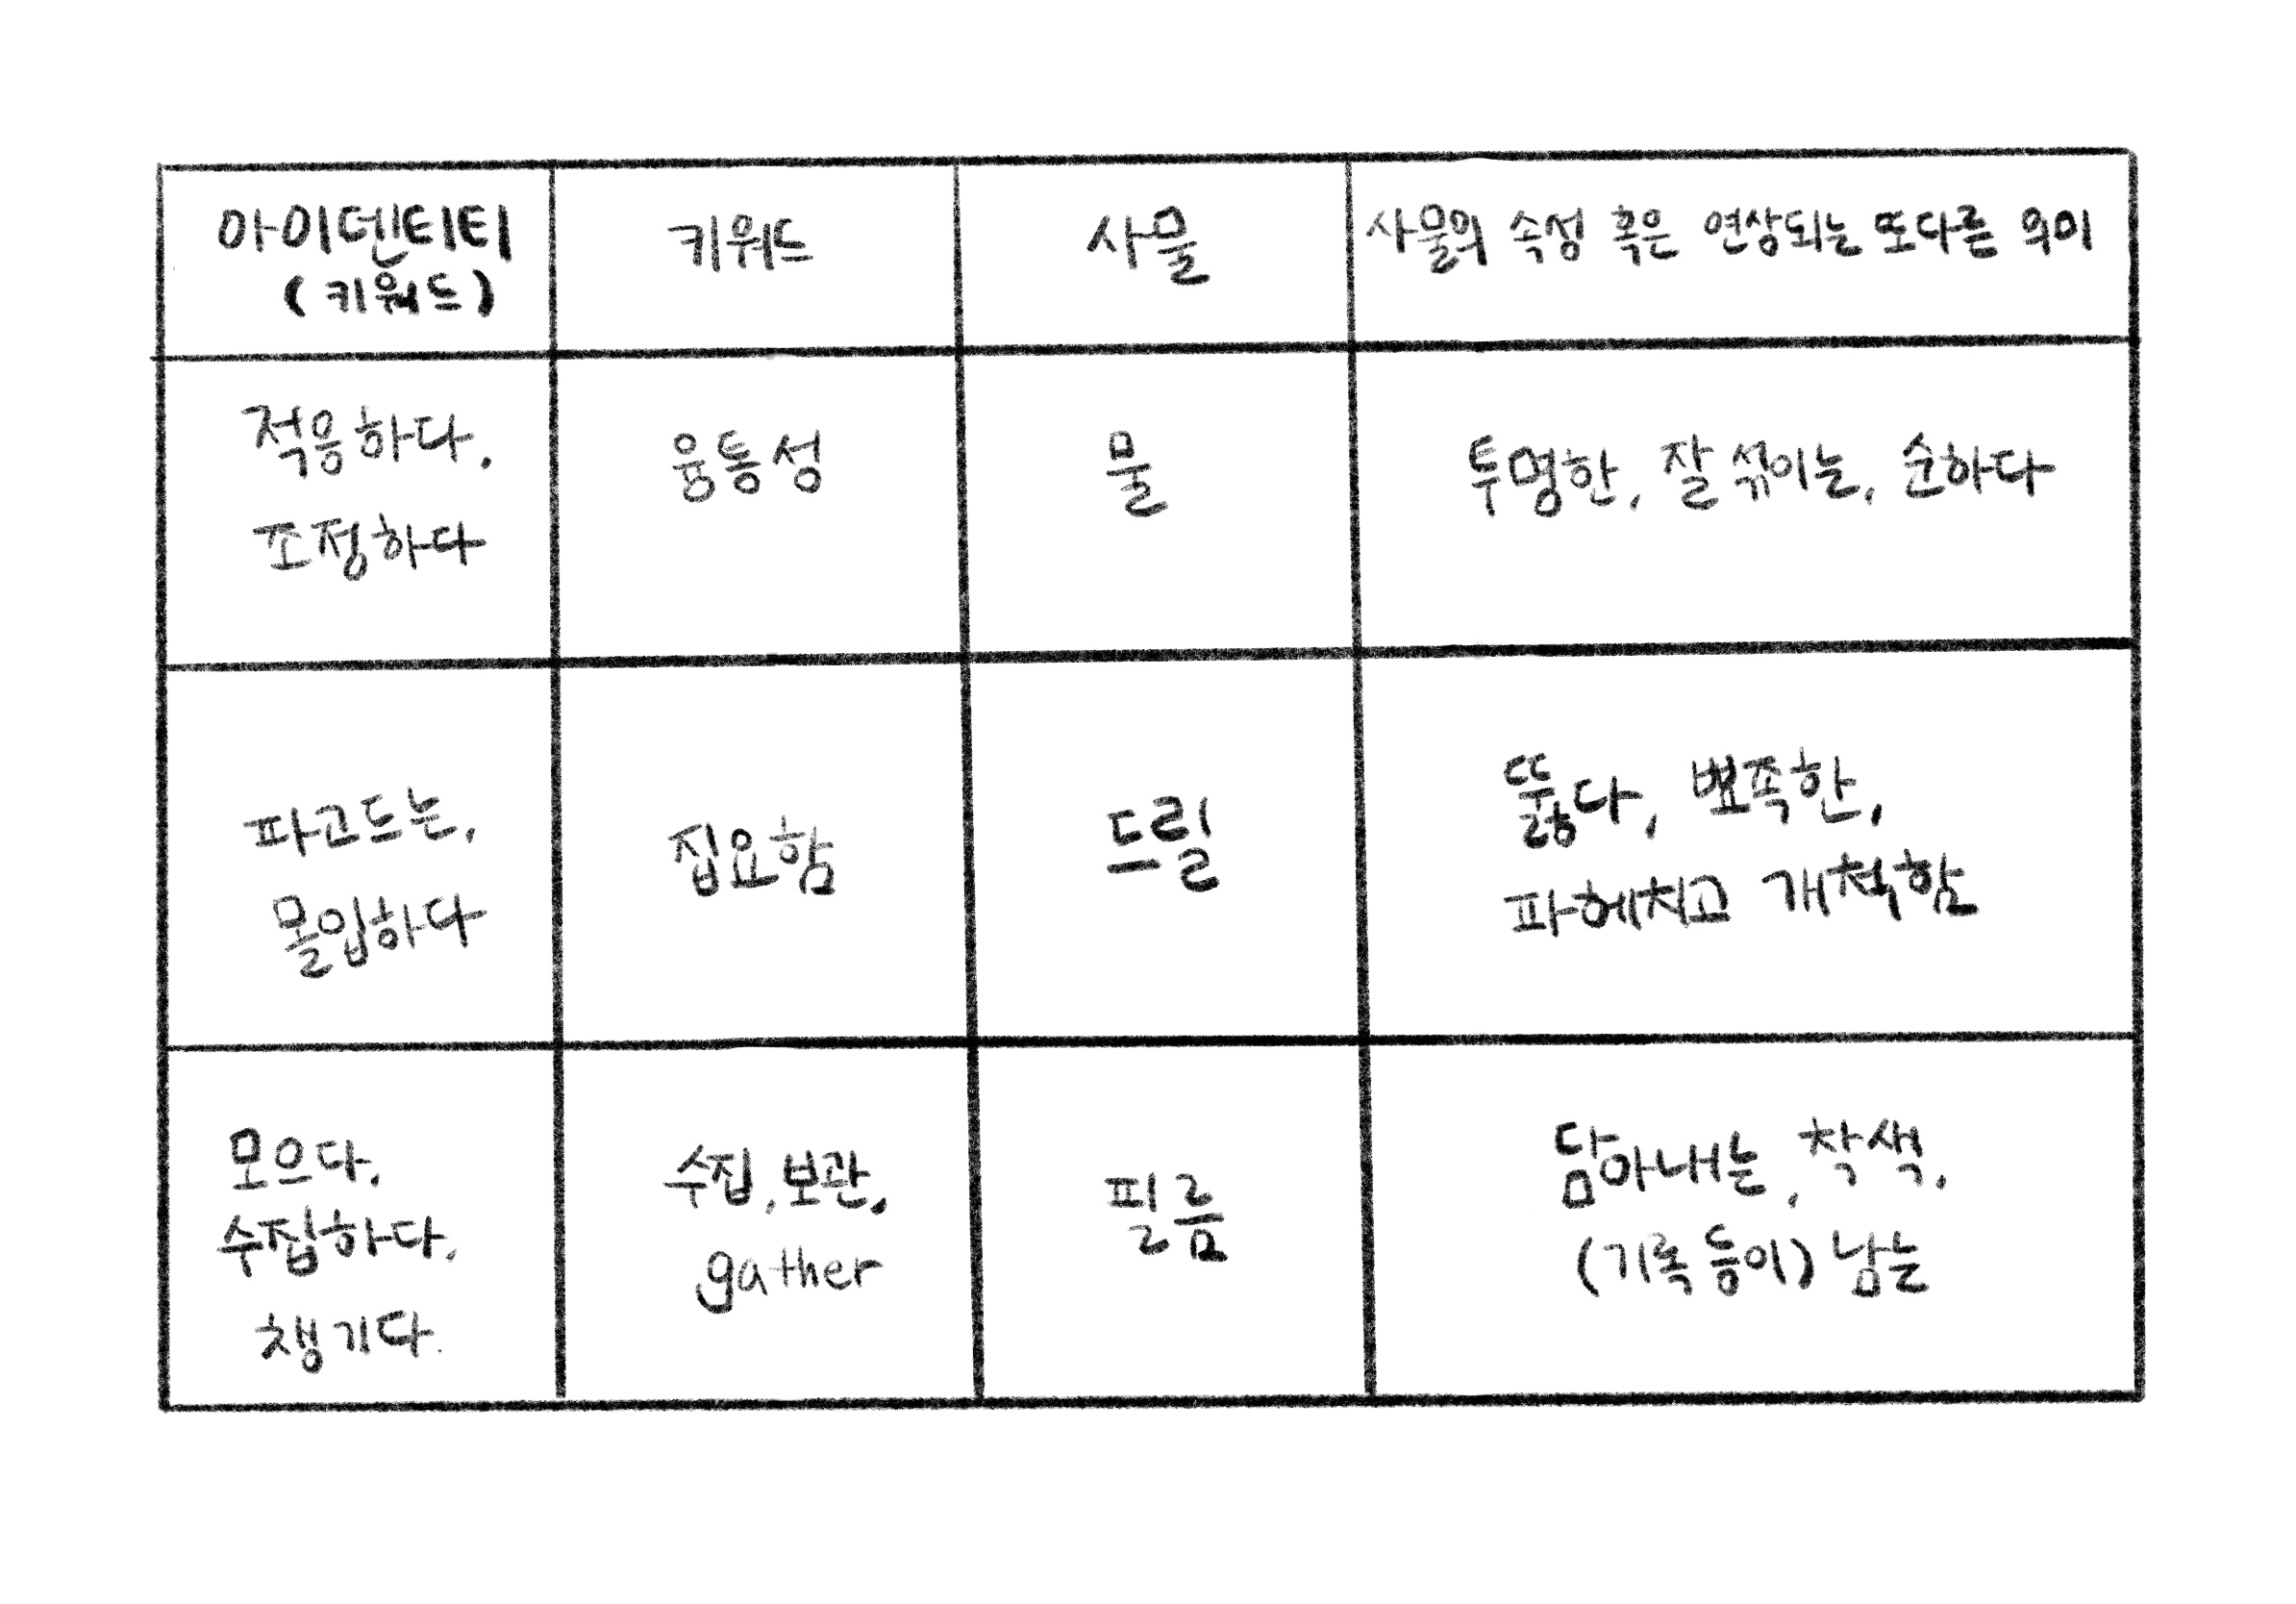 아이덴티티
(키워드)
키워드
사물
사물의 속성 혹은 연상되는 또다른 의미
적응하다,
조정하다
융통성
물
투명한, 잘 섞이는, 순하다
파고드는,
몰입하다
집요함
드릴
뚫다, 뾰족한,
파헤치고 개척함
모으다,
수집하다,
챙기다.
수집, 보관,
gather
필름
담아내는, 착색,
(기록 등이) 남는